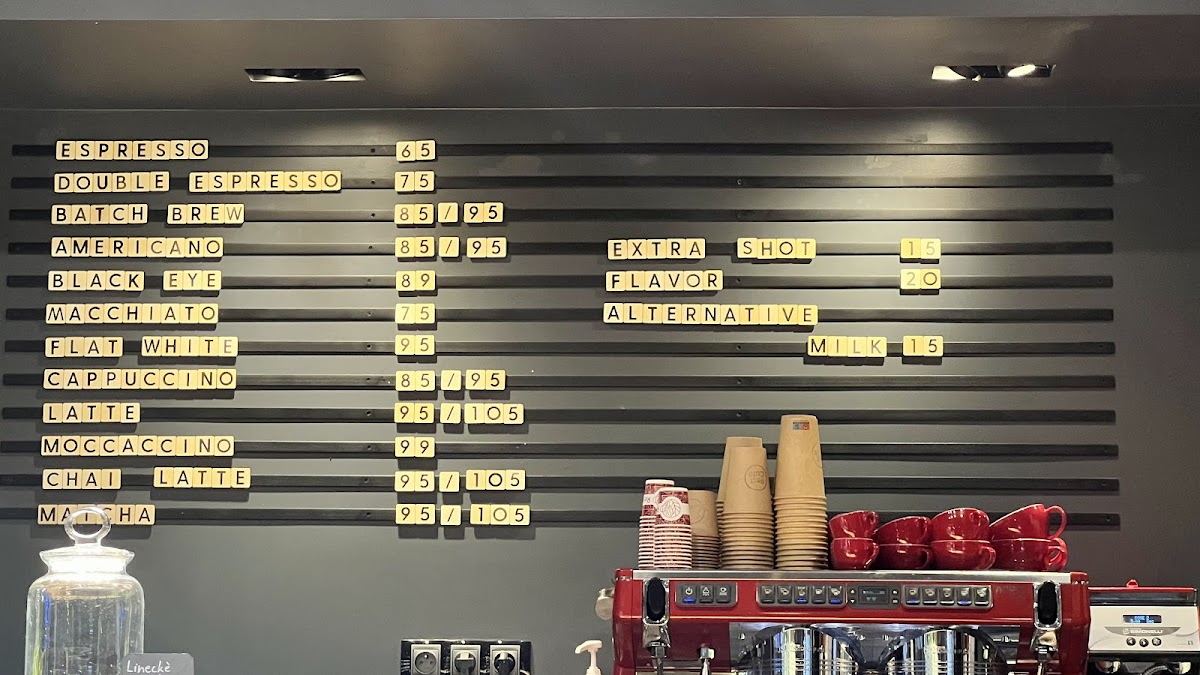 ESPRESSO 65
DOUBLE ESPRESSO 75
BATCH BREW 85/95
AMERICANO 85/95
BLACK EYE 89
MACCHIATO 75
FLAT WHITE 95
CAPPUCCINO 85/95
LATTE 95/105
MOCCACCINO 99
CHAI LATTE 95/105
MATCHA 95/105
EXTRA SHOT 15
FLAVOR 20
ALTERNATIVE
MILK 15
Linecké
SIMONELLI